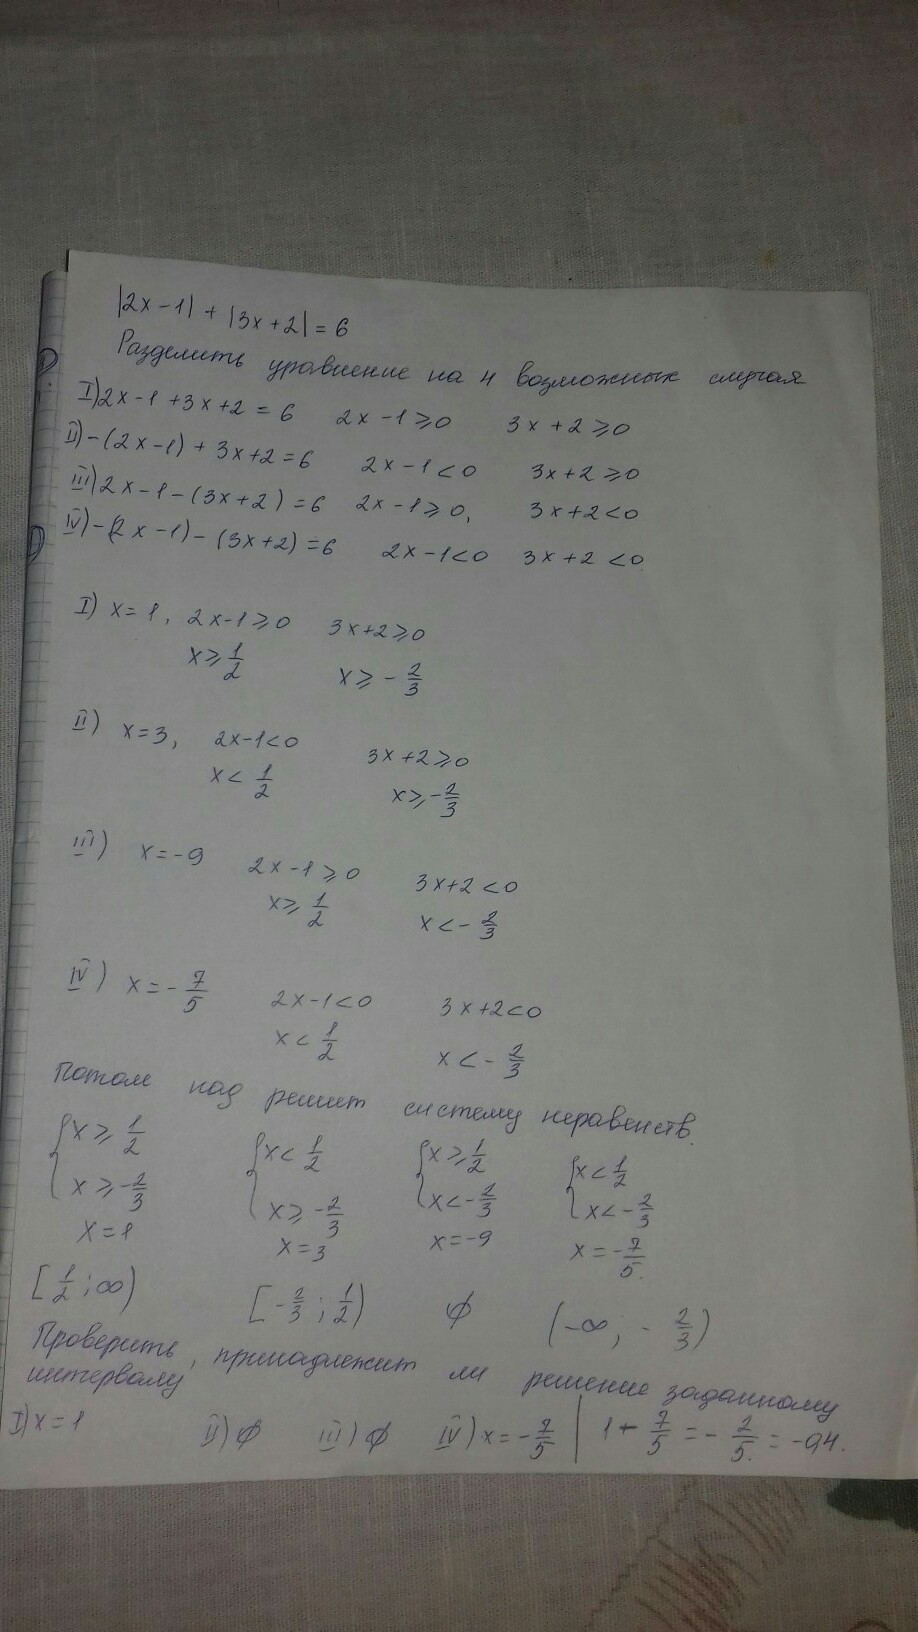 |2x-1| + |3x+2| = 6
Разделить уравнение на 4 возможных случая
I) 2x-1+3x+2=6 2x-1≥0 3x+2≥0
II) -(2x-1)+3x+2=6 2x-1<0 3x+2≥0
III) 2x-1-(3x+2)=6 2x-1≥0, 3x+2<0
IV) -(2x-1)-(3x+2)=6 2x-1<0 3x+2<0.
I) x=1, 2x-1≥0 3x+2≥0
x≥1/2 x≥-2/3
II) x=3, 2x-1<0 3x+2≥0
x<1/2 x≥-2/3
III) x=-9 2x-1≥0 3x+2<0
x≥1/2 x<-2/3
IV) x=-7/5 2x-1<0 3x+2<0
x<1/2 x<-2/3
Потом над решит систему неравенств.
{x≥1/2 {x<1/2 {x≥1/2 {x<1/2
{x≥-2/3 {x≥-2/3 {x<-2/3 {x<-2/3
x=1 x=3 x=-9 x=-7/5.
[1/2;∞) [-2/3;1/2) ∅ (-∞;-2/3)
Проверить, принадлежит ли решение заданному
интервалу
I) x=1 II) ∅ III) ∅ IV) x=-7/5 | 1-7/5=-2/5.=-0,4.